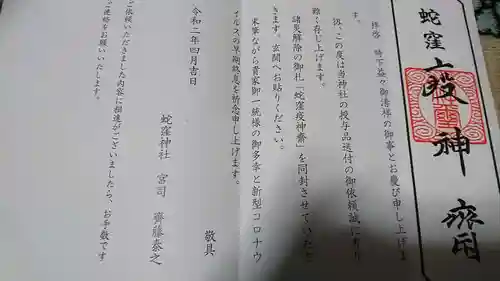 蛇窪疫神齋
拝啓 時下益々御清祥の御事とお慶び申し上げま
す。
扨、この度は当神社の授与品送付の御依頼誠に有り
難く存じ上げます。
諸災解除の御札「蛇窪疫神齋」を同封させていただ
きます。玄関へお貼りください。
末筆ながら貴家御一統様の御多幸と新型コロナウ
イルスの早期終息を祈念申し上げます。
敬具
令和二年四月吉日
蛇窪神社 宮司 齊藤泰之
ご依頼いただきました内容に相違がございましたら、お手数です
ご連絡をお願いいたします。